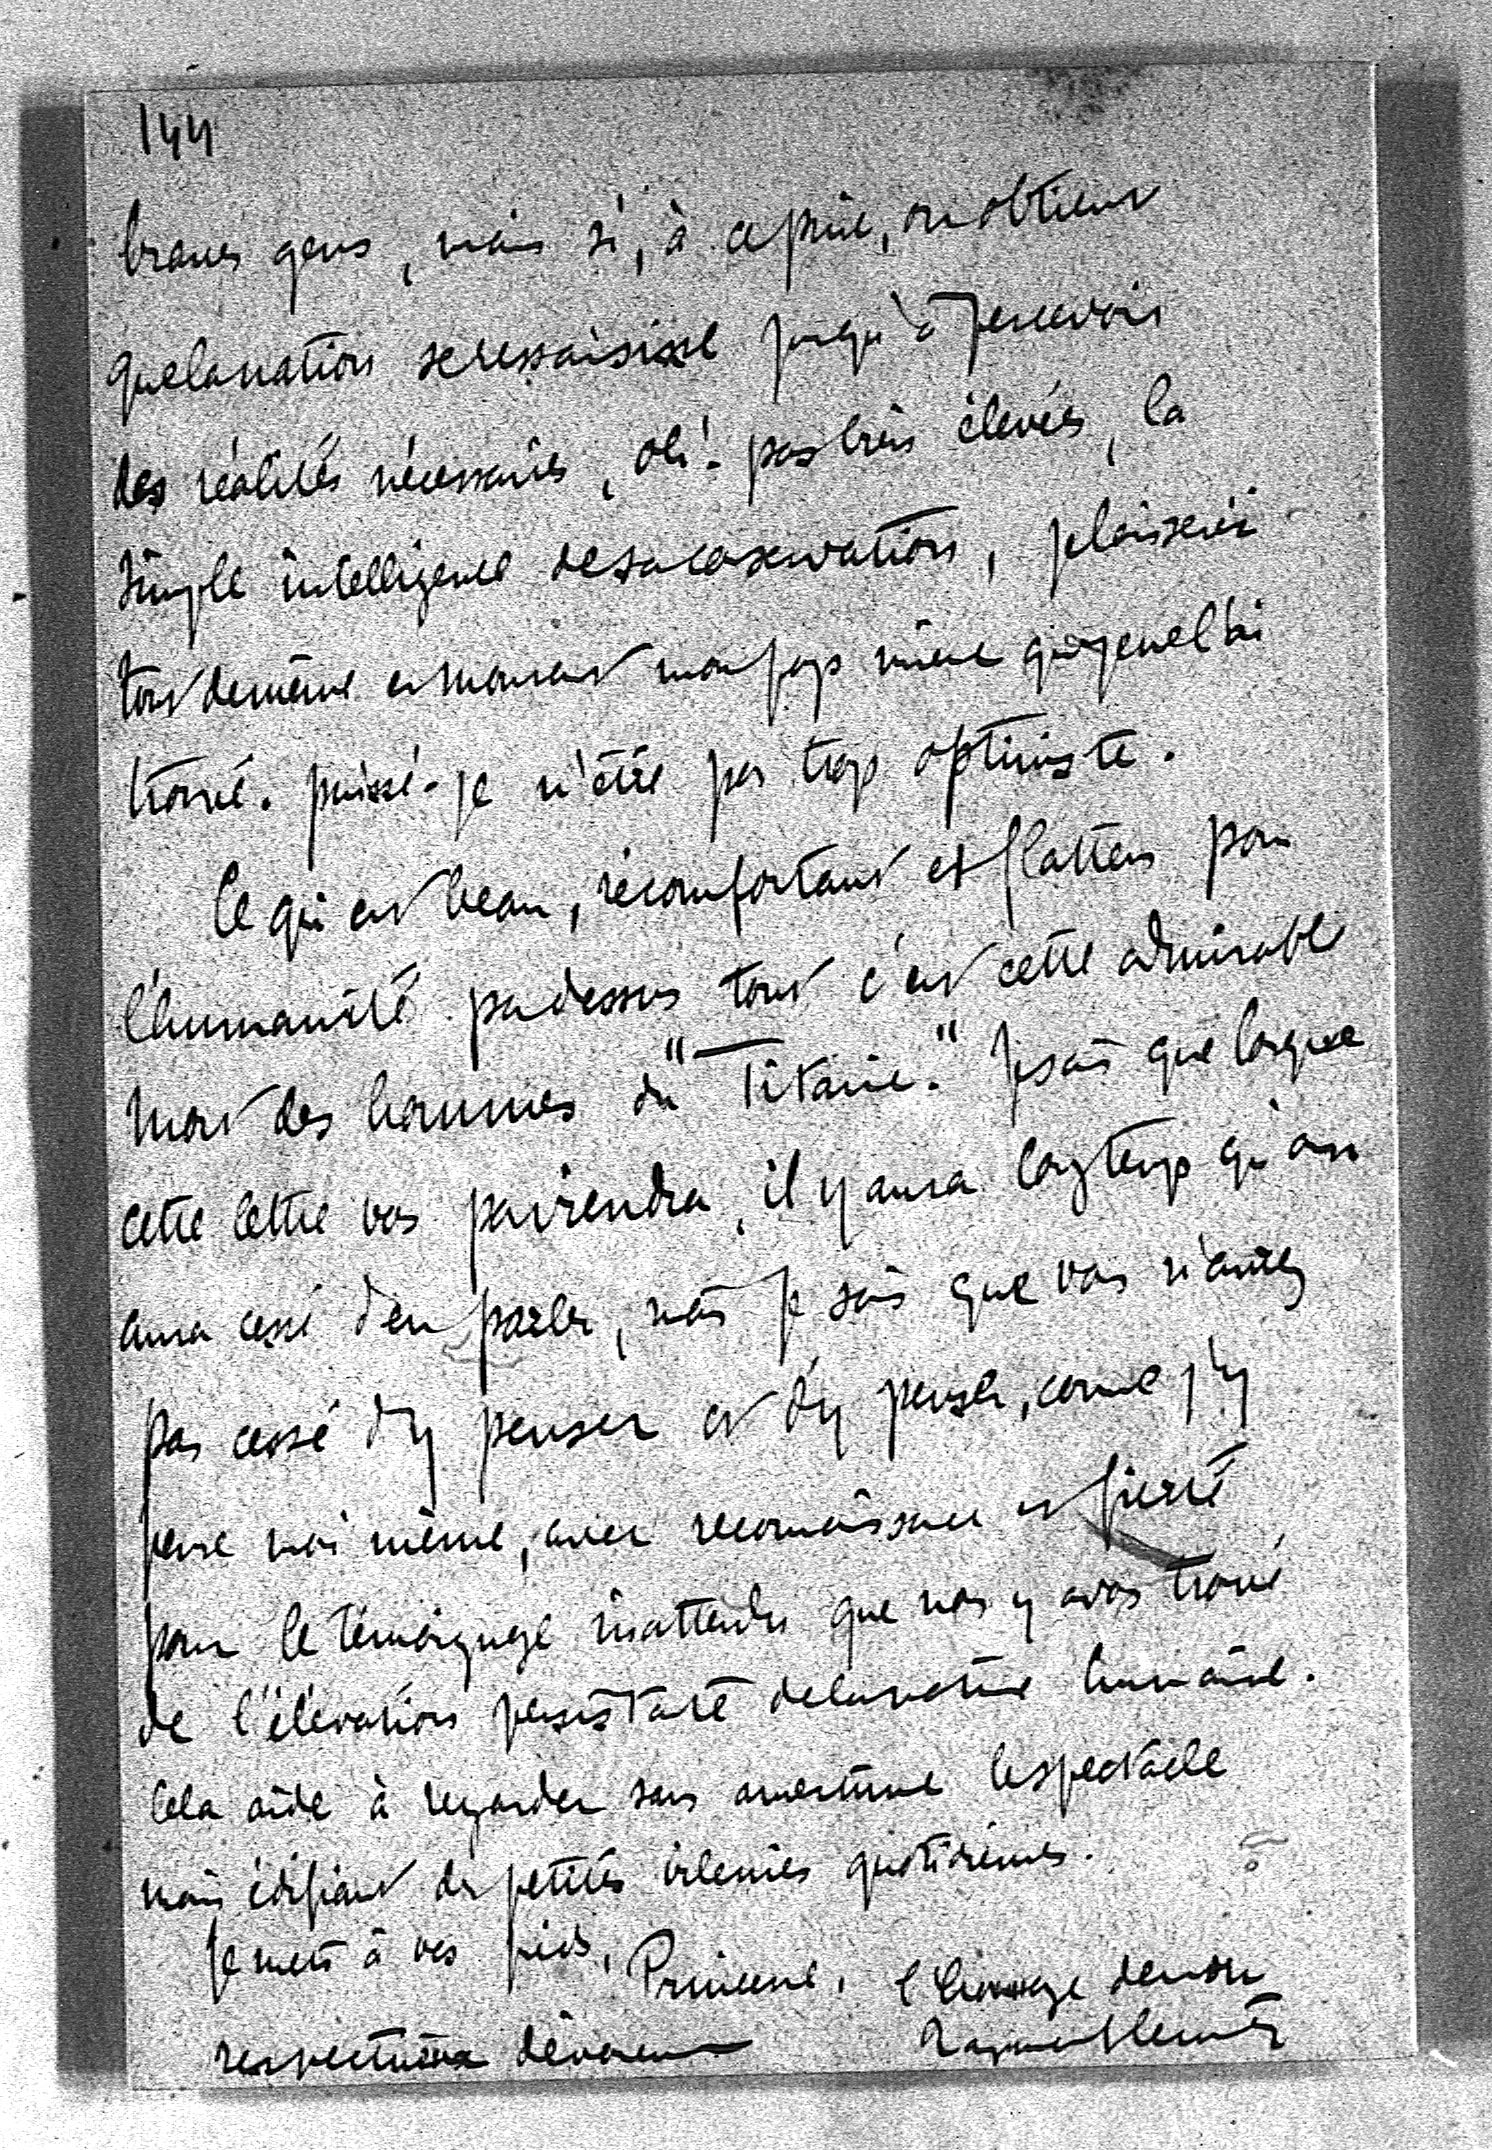 144
braves gens, mais si, à ce prix, on obtient
que la nation se ressaisisse jusqu'à percevoir
des réalités nécessaires, oh! pas très élevées, la
simple intelligence de sa conservation, je laisserai
tout de même en mourant mon pays mieux que je ne l'ai
trouvé. puissé-je n'être pas trop optimiste.
Ce qui est beau, réconfortant et flatteur pour
l'humanité par dessus tout c'est cette admirable
mort des hommes du "Titanic." Je sais que lorsque
cette lettre vous parviendra, il y aura longtemps qu'on
aura cessé d'en parler, mais je sais que vous n'aurez
pas cessé d'y penser et d'y penser, comme j'y
pense moi même, avec reconnaissance et fierté
pour le témoignage inattendu que nous y avons trouvé
de l'élévation persistante de la nature humaine.
Cela aide à regarder sans amertume le spectacle
moins édifiant des petites vilenies quotidiennes.
Je mets à vos pieds, Princesse, l'hommage de mon
respectueux dévouement